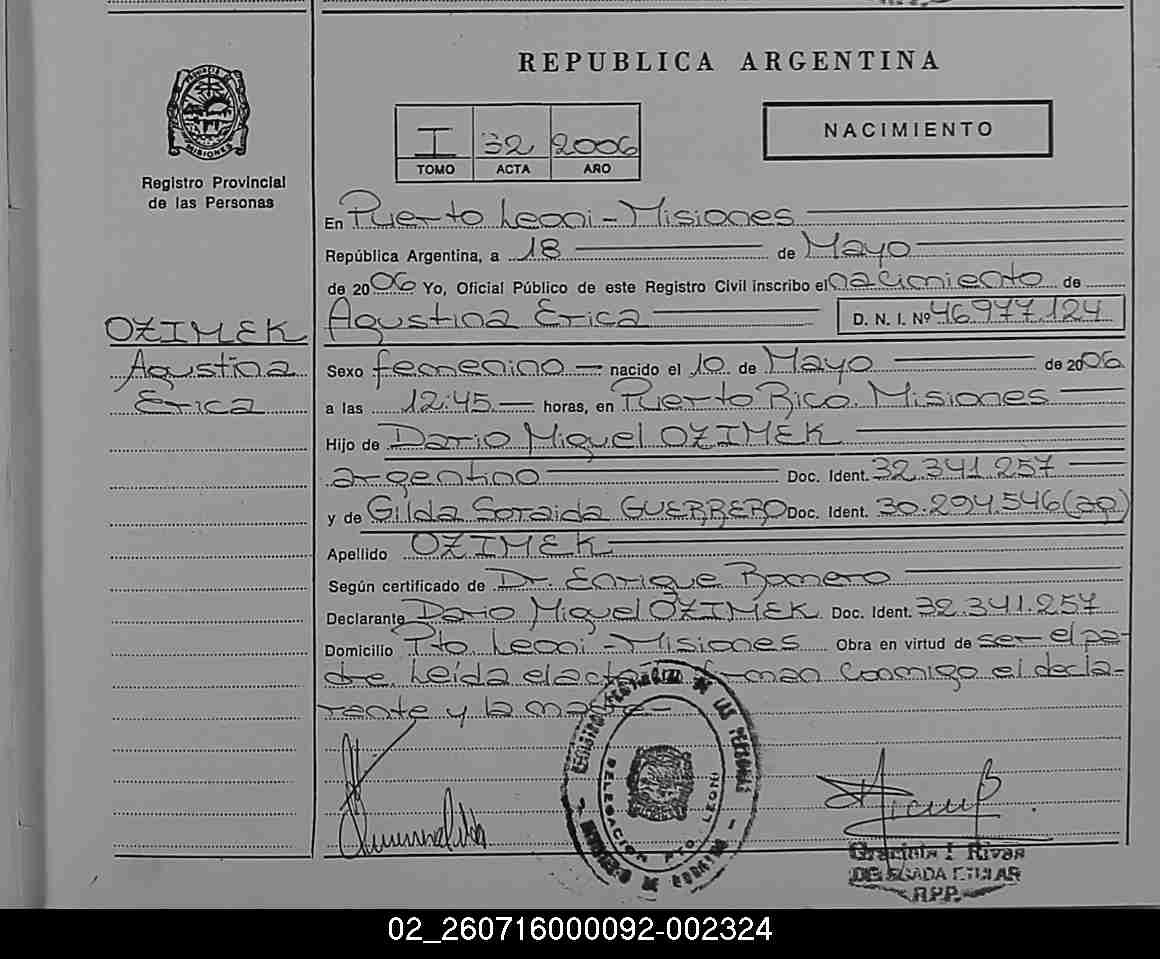 REPUBLICA ARGENTINA
PROVINCIA DE
MISIONES
Registro Provincial
de las Personas
I 32 2006
TOMO ACTA AÑO
NACIMIENTO
En Puerto Leoni - Misiones
República Argentina, a 18 de Mayo
de 2006 Yo, Oficial Público de este Registro Civil inscribo el nacimiento de
OZIMEK
Agustina
Erica
Agustina Erica D. N. I. Nº 46977124
Sexo femenino nacido el 10 de Mayo de 2006
a las 12:45 horas, en Puerto Rico. Misiones
Hijo de Dario Miguel OZIMEK
argentino Doc. Ident. 32.341.257
y de Gilda Soraida GUERRERO Doc. Ident. 30.294.546 (ap)
Apellido OZIMEK
Según certificado de Dr. Enrique Romero
Declarante Dario Miguel OZIMEK Doc. Ident. 32.341.257
Domicilio Pto. Leoni - Misiones Obra en virtud de ser el pa-
dre Leída el acta firman conmigo el decla-
rante y la madre
REGISTRO PROVINCIAL DE LAS PERSONAS
DELEGACION PTO. LEONI
MINISTERIO DE GOBIERNO
Graciela I Rivas
DELEGADA TITULAR
R.P.P.
02_260716000092-002324